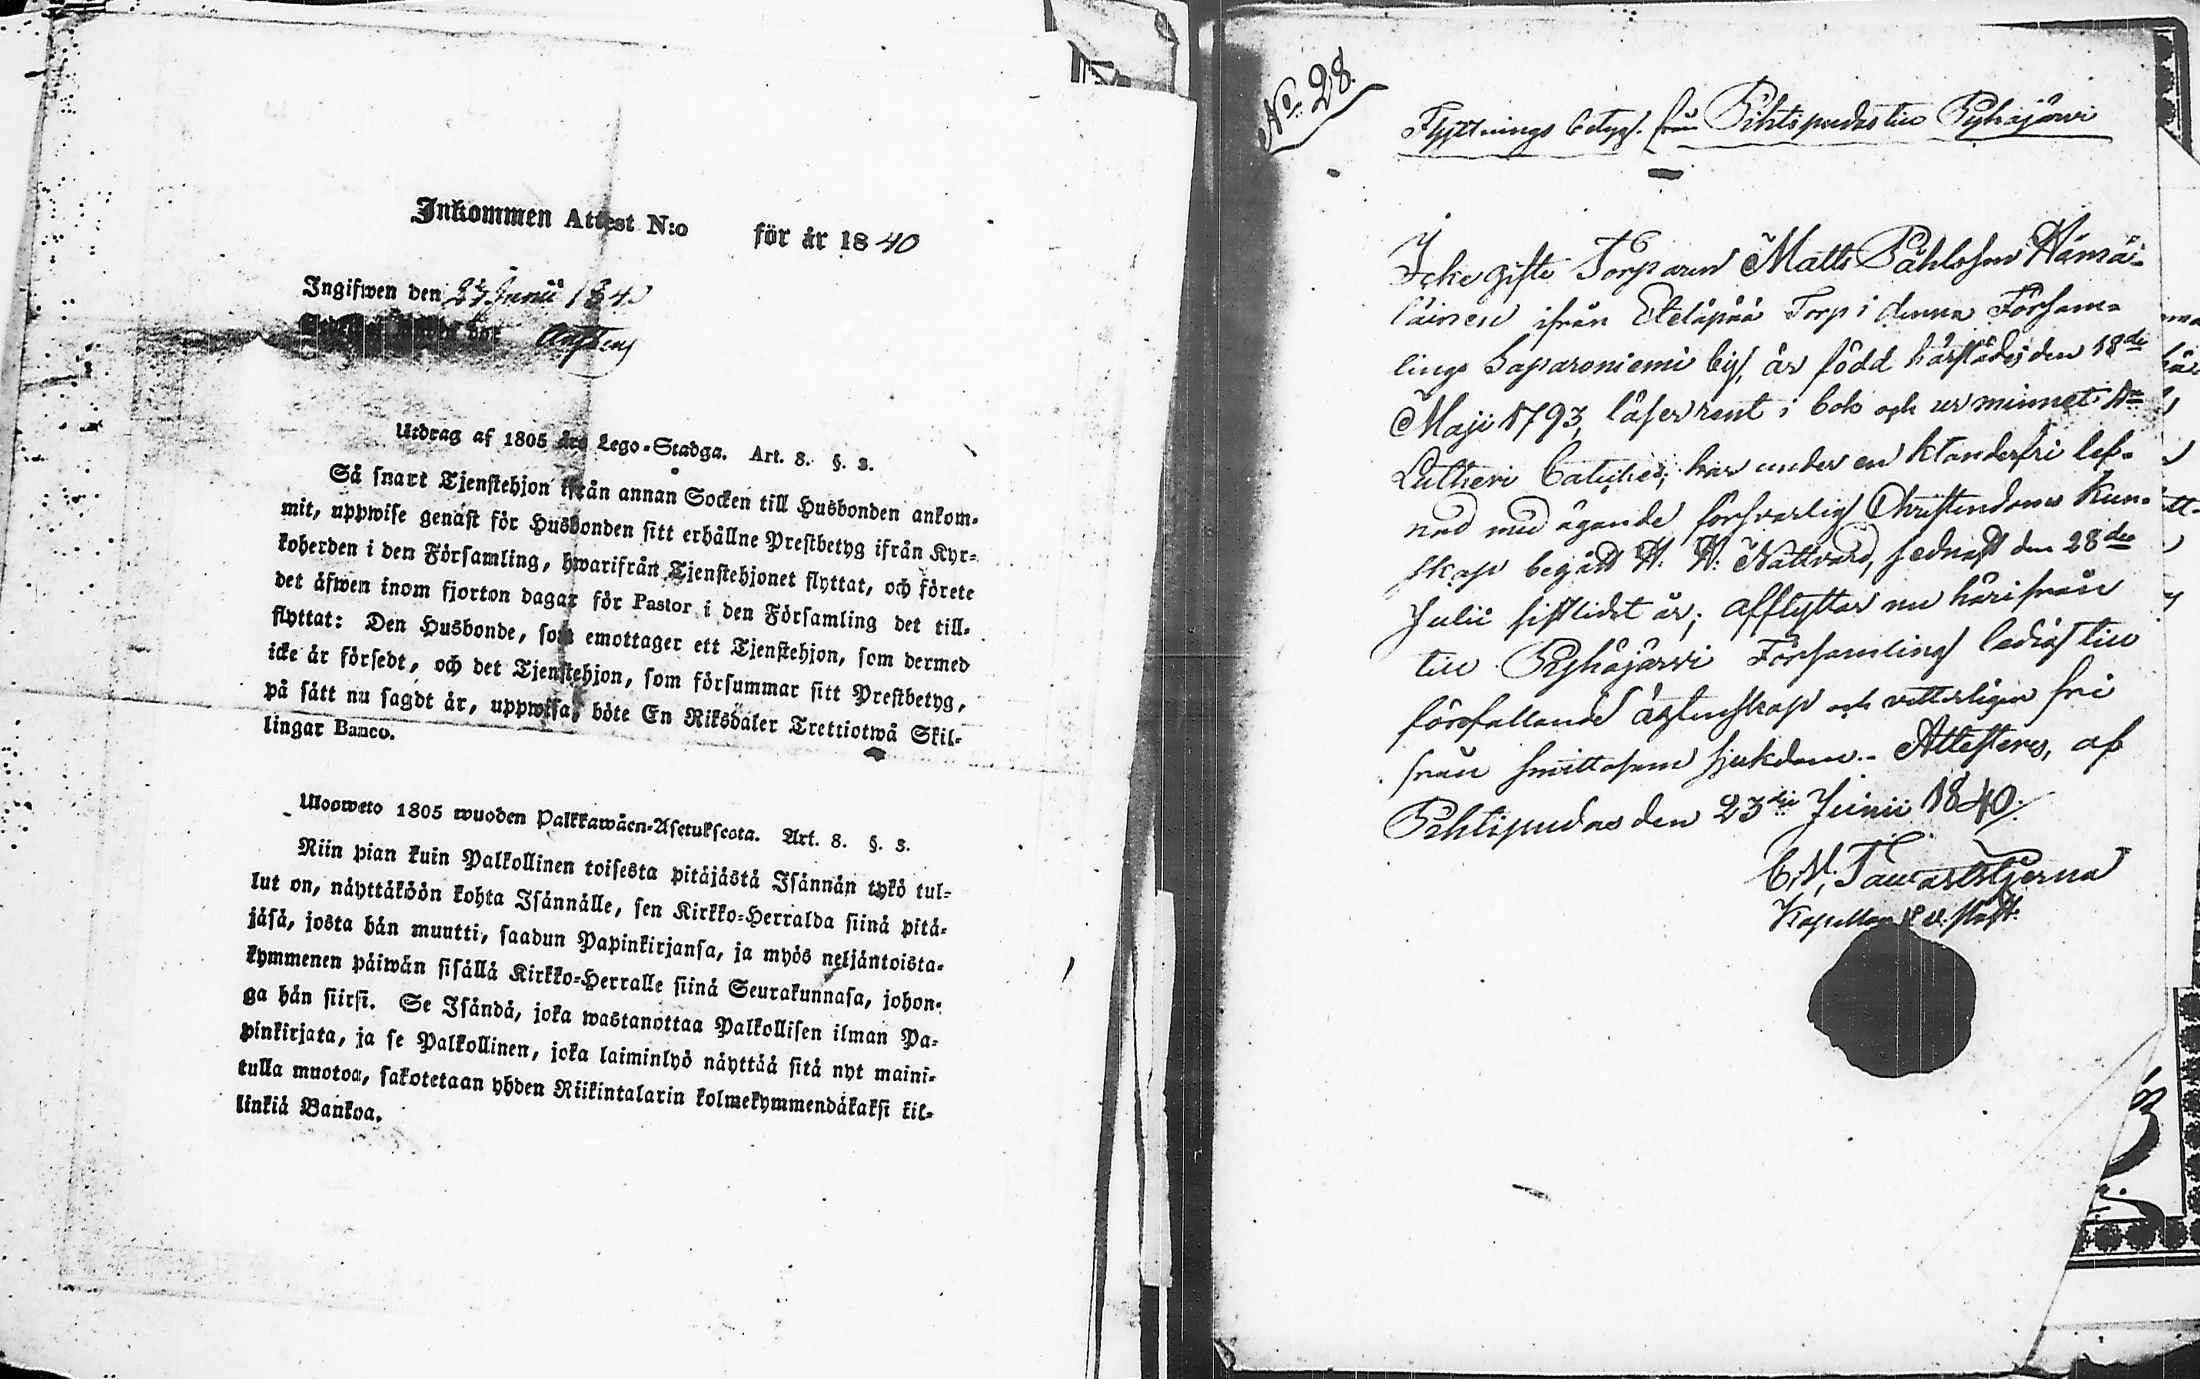 Inkommen Attest N:o för år 1840
Ingifwen den 27 Junii 1840
Utdrag af 1805 års Lego-Stadga. Art. 8. §. 3.
Så snart Tjenstehjon ifrån annan Socken till Husbonden ankom-
mit, uppwise genast för Husbonden sitt erhållne Prestbetyg ifrån Kyr-
koherden i den Församling, hwarifrån Tjenstehjonet flyttat, och förete
det äfwen inom fjorton dagar för Pastor i den Församling det till-
flyttat: Den Husbonde, som emottager ett Tjenstehjon, som dermed
icke är försedt, och det Tjenstehjon, som försummar sitt Prestbetyg,
på sätt nu sagdt är, uppwisa, böte En Riksdaler Trettiotwå Skil-
lingar Banco.
Ulosweto 1805 wuoden Palkkawäen-Asetuksesta. Art. 8. §. 3.
Niin pian kuin Palkollinen toisesta pitäjästä Isännän tykö tul-
lut on, näyttäköön kohta Isännälle, sen Kirkko-Herralda siinä pitä-
jäsä, josta hän muutti, saadun Papinkirjansa, ja myös neljäntoista-
kymmenen päiwän sisällä Kirkko-Herralle siinä Seurakunnasa, johon-
ga hän siirsi. Se Isändä, joka wastanottaa Palkollisen ilman Pa-
pinkirjata, ja se Palkollinen, joka laiminlyö näyttää sitä nyt maini-
tulla muotoa, sakotetaan yhden Riikintalarin kolmekymmendäkaksi kil-
linkiä Bankoa.
No 28.
Flyttnings betyg. från Pihtipudas till Pyhäjärwi
Icke gifte Torparen Matts Påhlsson Hämä-
läinen ifrån Eteläpää Torp i denna Försam-
lings Saparoniemi by, är född härstädes den 18de
Maji 1793, läser rent i bok och ur minnet Drs
Lutheri Catiches; har under en klanderfri lef-
nad med ägande försvarlig Christendoms Kun-
skap begått H. H: Nattvard, sednast den 28de
Julii sistlidet år; afflyttar nu härifrån
till Pyhäjärvi Församling ledig till
förefallande äktenskap och vetterligen fri
från smittosam sjukdom.- Attesteras, af
Pihtipudas den 23dje Junii 1840.
C. M. Tawaststjerna
Kapellan